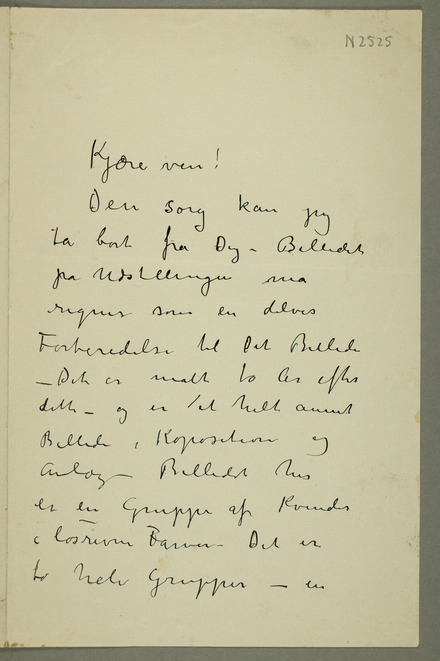 N 2525
Kjære ven!
Den sorg kan jeg
ta bort fra Dig – Billedet
på Udstillingen må
regnes som en delvis
Forberedelse til Det Billede
– Det er malt to År efter
dette – og er et helt annet
Billede i Koposition og
Anlæg – Billedet hos
er en Gruppe af Kvinder
i løsrevne Farver – Det er
to hele Grupper – en